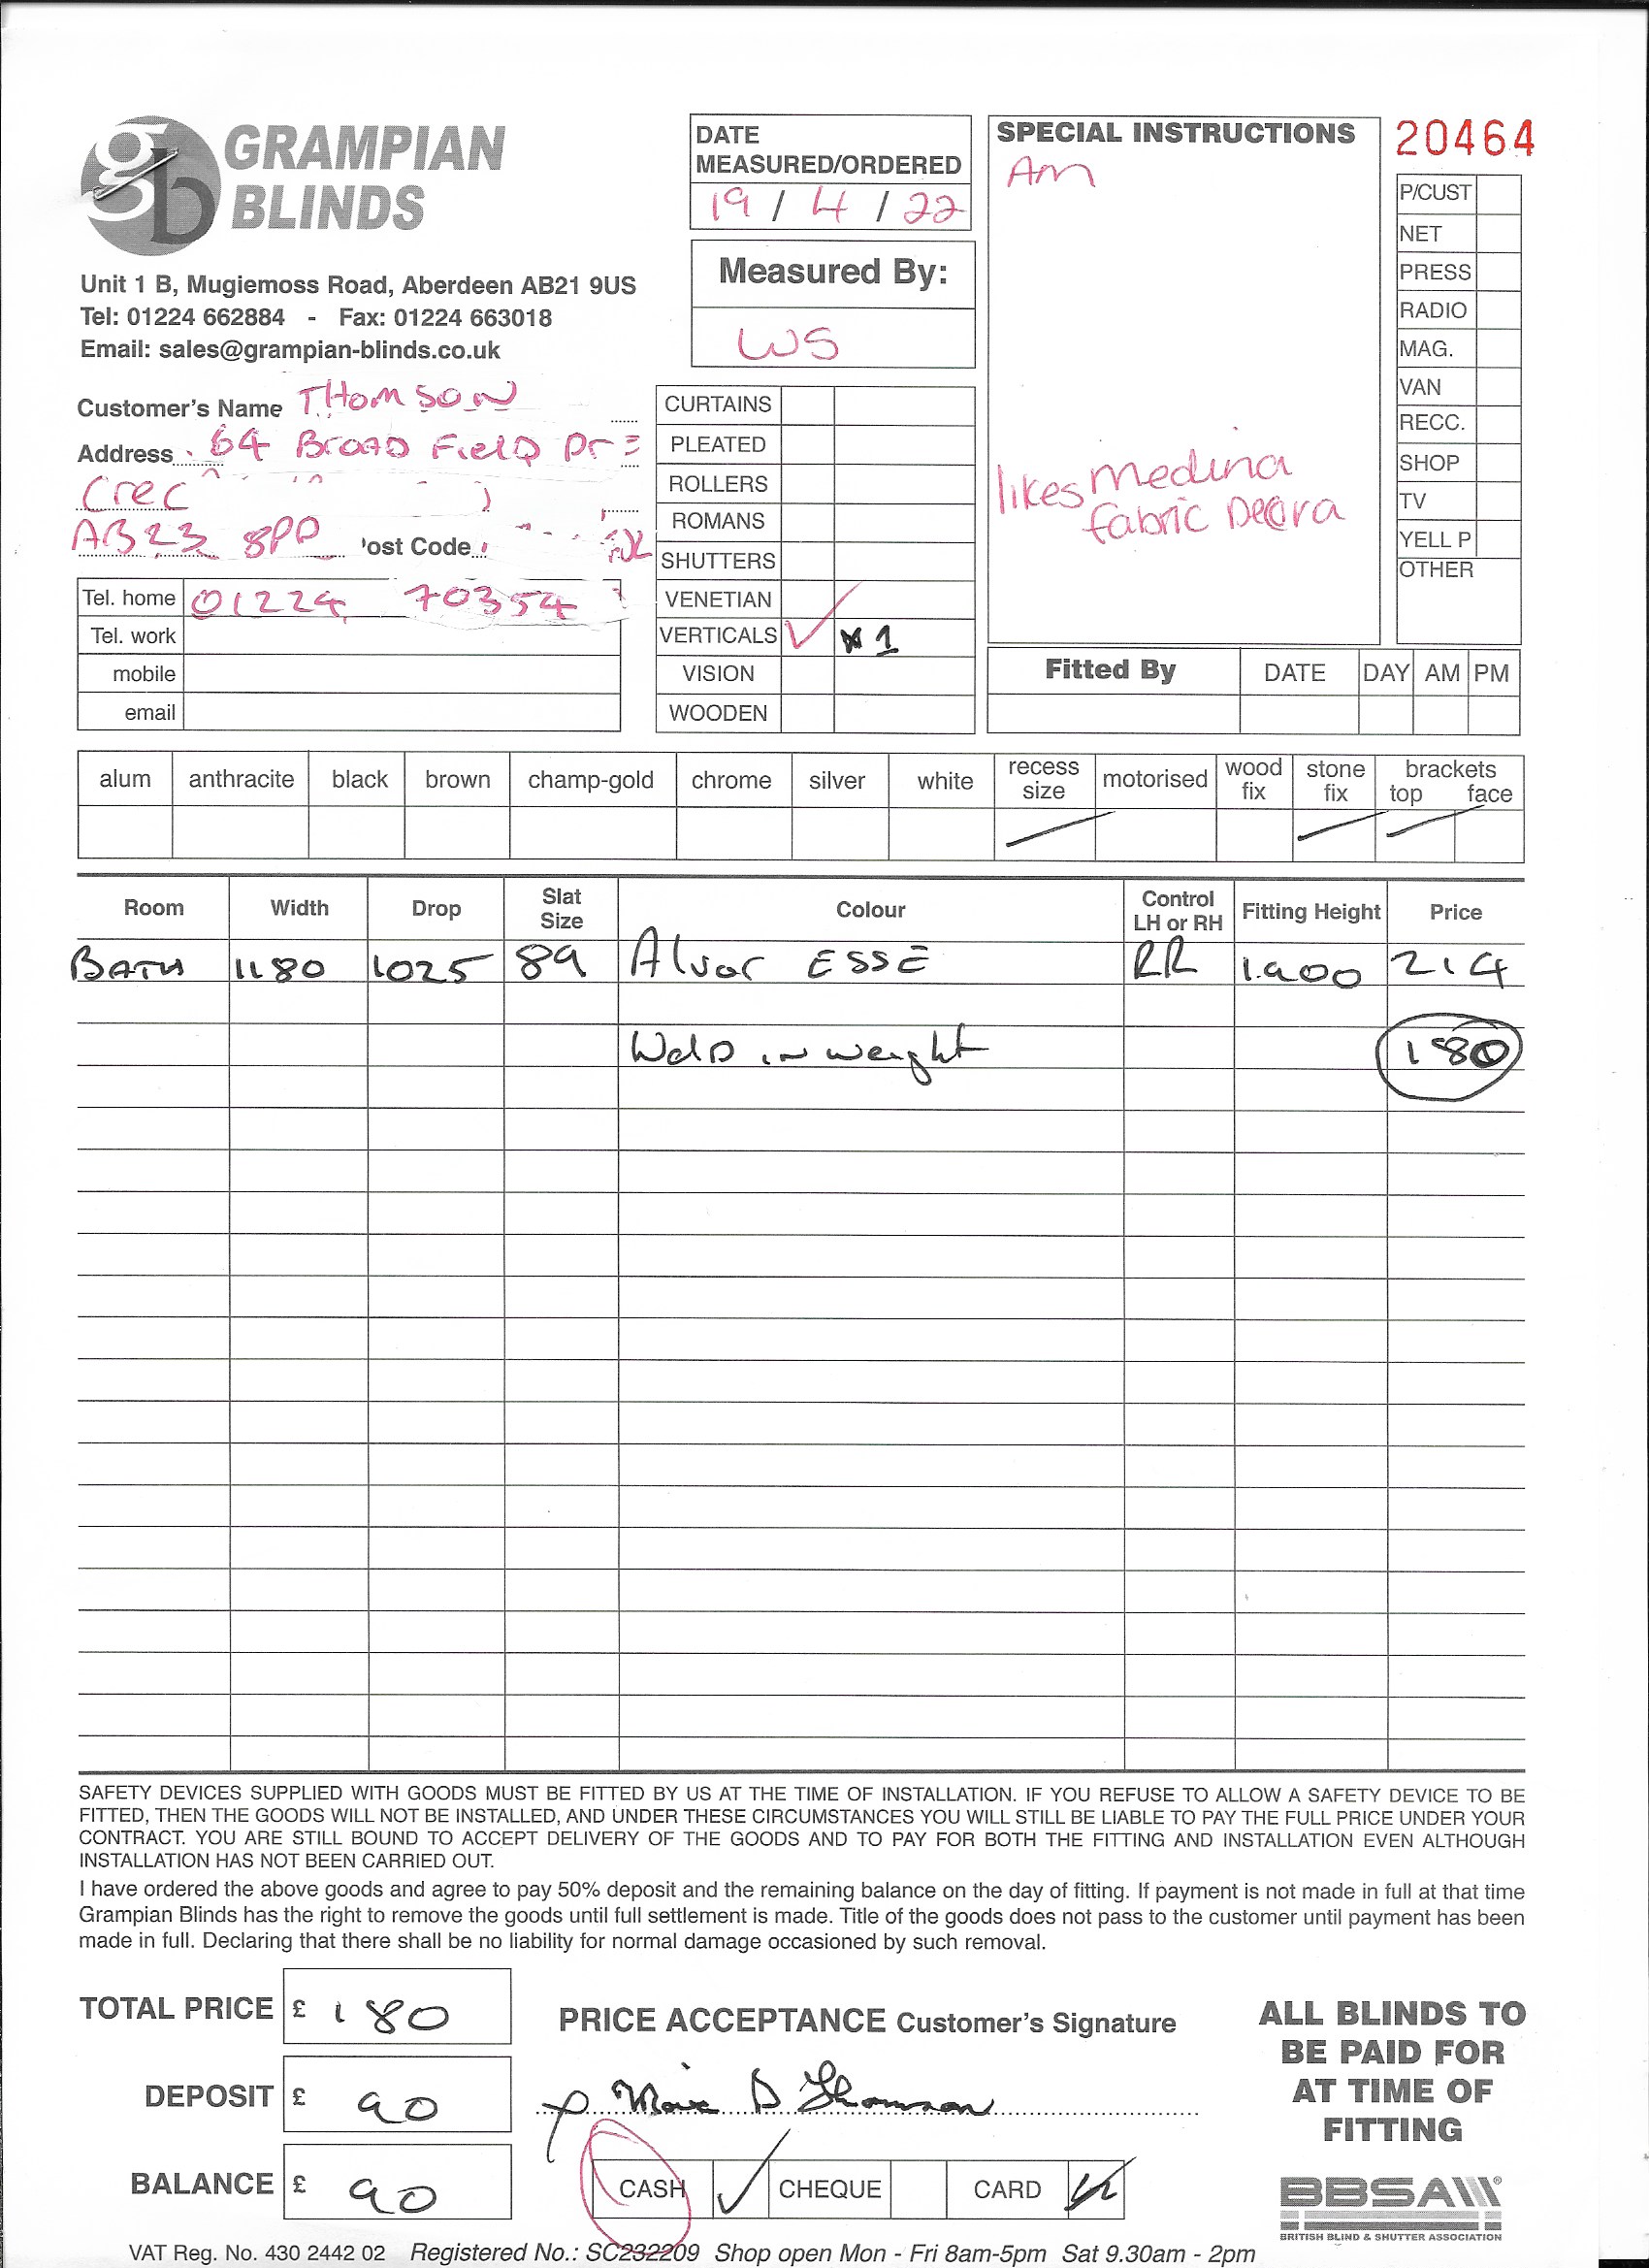 GRAMPIAN
BLINDS
Unit 1 B, Mugiemoss Road, Aberdeen AB21 9US
Tel: 01224 662884 - Fax: 01224 663018
Email: sales@grampian-blinds.co.uk
DATE
MEASURED/ORDERED
19 / 4 / 22
Measured By:
WS
SPECIAL INSTRUCTIONS
Am
likes Medina
fabric Decora
20464
P/CUST
NET
PRESS
RADIO
MAG.
VAN
RECC.
SHOP
TV
YELL P
OTHER
Customer's Name THOMSON
Address 64 BROAD FIELD
AB23 8PD ost Code
Tel. home 01224 70354
Tel. work
mobile
email
CURTAINS
PLEATED
ROLLERS
ROMANS
SHUTTERS
VENETIAN
VERTICALS ✓ x1
VISION
WOODEN
Fitted By DATE DAY AM PM
alum anthracite black brown champ-gold chrome silver white recess size motorised wood fix stone fix brackets top face
Room Width Drop Slat Size Colour Control LH or RH Fitting Height Price
BATH 1180 1025 89 Alvor ESSE RR 1900 214
Weld in weight 180
SAFETY DEVICES SUPPLIED WITH GOODS MUST BE FITTED BY US AT THE TIME OF INSTALLATION. IF YOU REFUSE TO ALLOW A SAFETY DEVICE TO BE
FITTED, THEN THE GOODS WILL NOT BE INSTALLED, AND UNDER THESE CIRCUMSTANCES YOU WILL STILL BE LIABLE TO PAY THE FULL PRICE UNDER YOUR
CONTRACT. YOU ARE STILL BOUND TO ACCEPT DELIVERY OF THE GOODS AND TO PAY FOR BOTH THE FITTING AND INSTALLATION EVEN ALTHOUGH
INSTALLATION HAS NOT BEEN CARRIED OUT.
I have ordered the above goods and agree to pay 50% deposit and the remaining balance on the day of fitting. If payment is not made in full at that time
Grampian Blinds has the right to remove the goods until full settlement is made. Title of the goods does not pass to the customer until payment has been
made in full. Declaring that there shall be no liability for normal damage occasioned by such removal.
TOTAL PRICE £ 180
DEPOSIT £ 90
BALANCE £ 90
PRICE ACCEPTANCE Customer's Signature
D Thomson
CASH ✓ CHEQUE CARD
ALL BLINDS TO
BE PAID FOR
AT TIME OF
FITTING
BBSA
BRITISH BLIND & SHUTTER ASSOCIATION
VAT Reg. No. 430 2442 02 Registered No.: SC232209 Shop open Mon - Fri 8am-5pm Sat 9.30am - 2pm